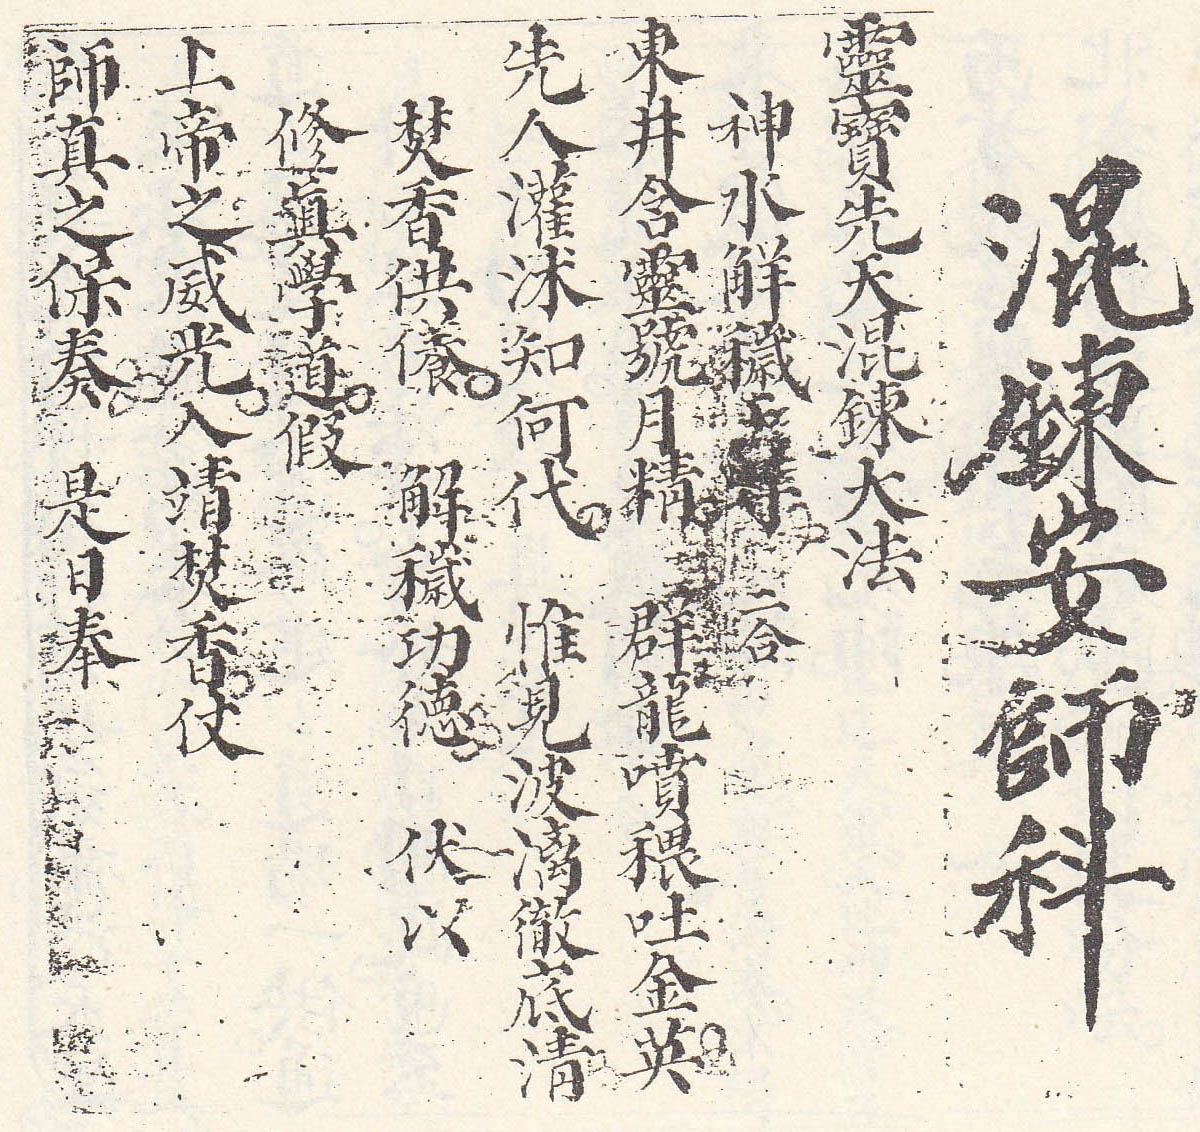 混鍊安師科
靈寶先天混鍊大法
神水解穢 二合
東井含靈號月精 群龍噴穢吐金英
先人灌沐知何代 惟見波漓徹底清
焚香供養 解穢功德 伏以
修眞學道假
上帝之威光入靖焚香仗
師真之保奏 是日奉